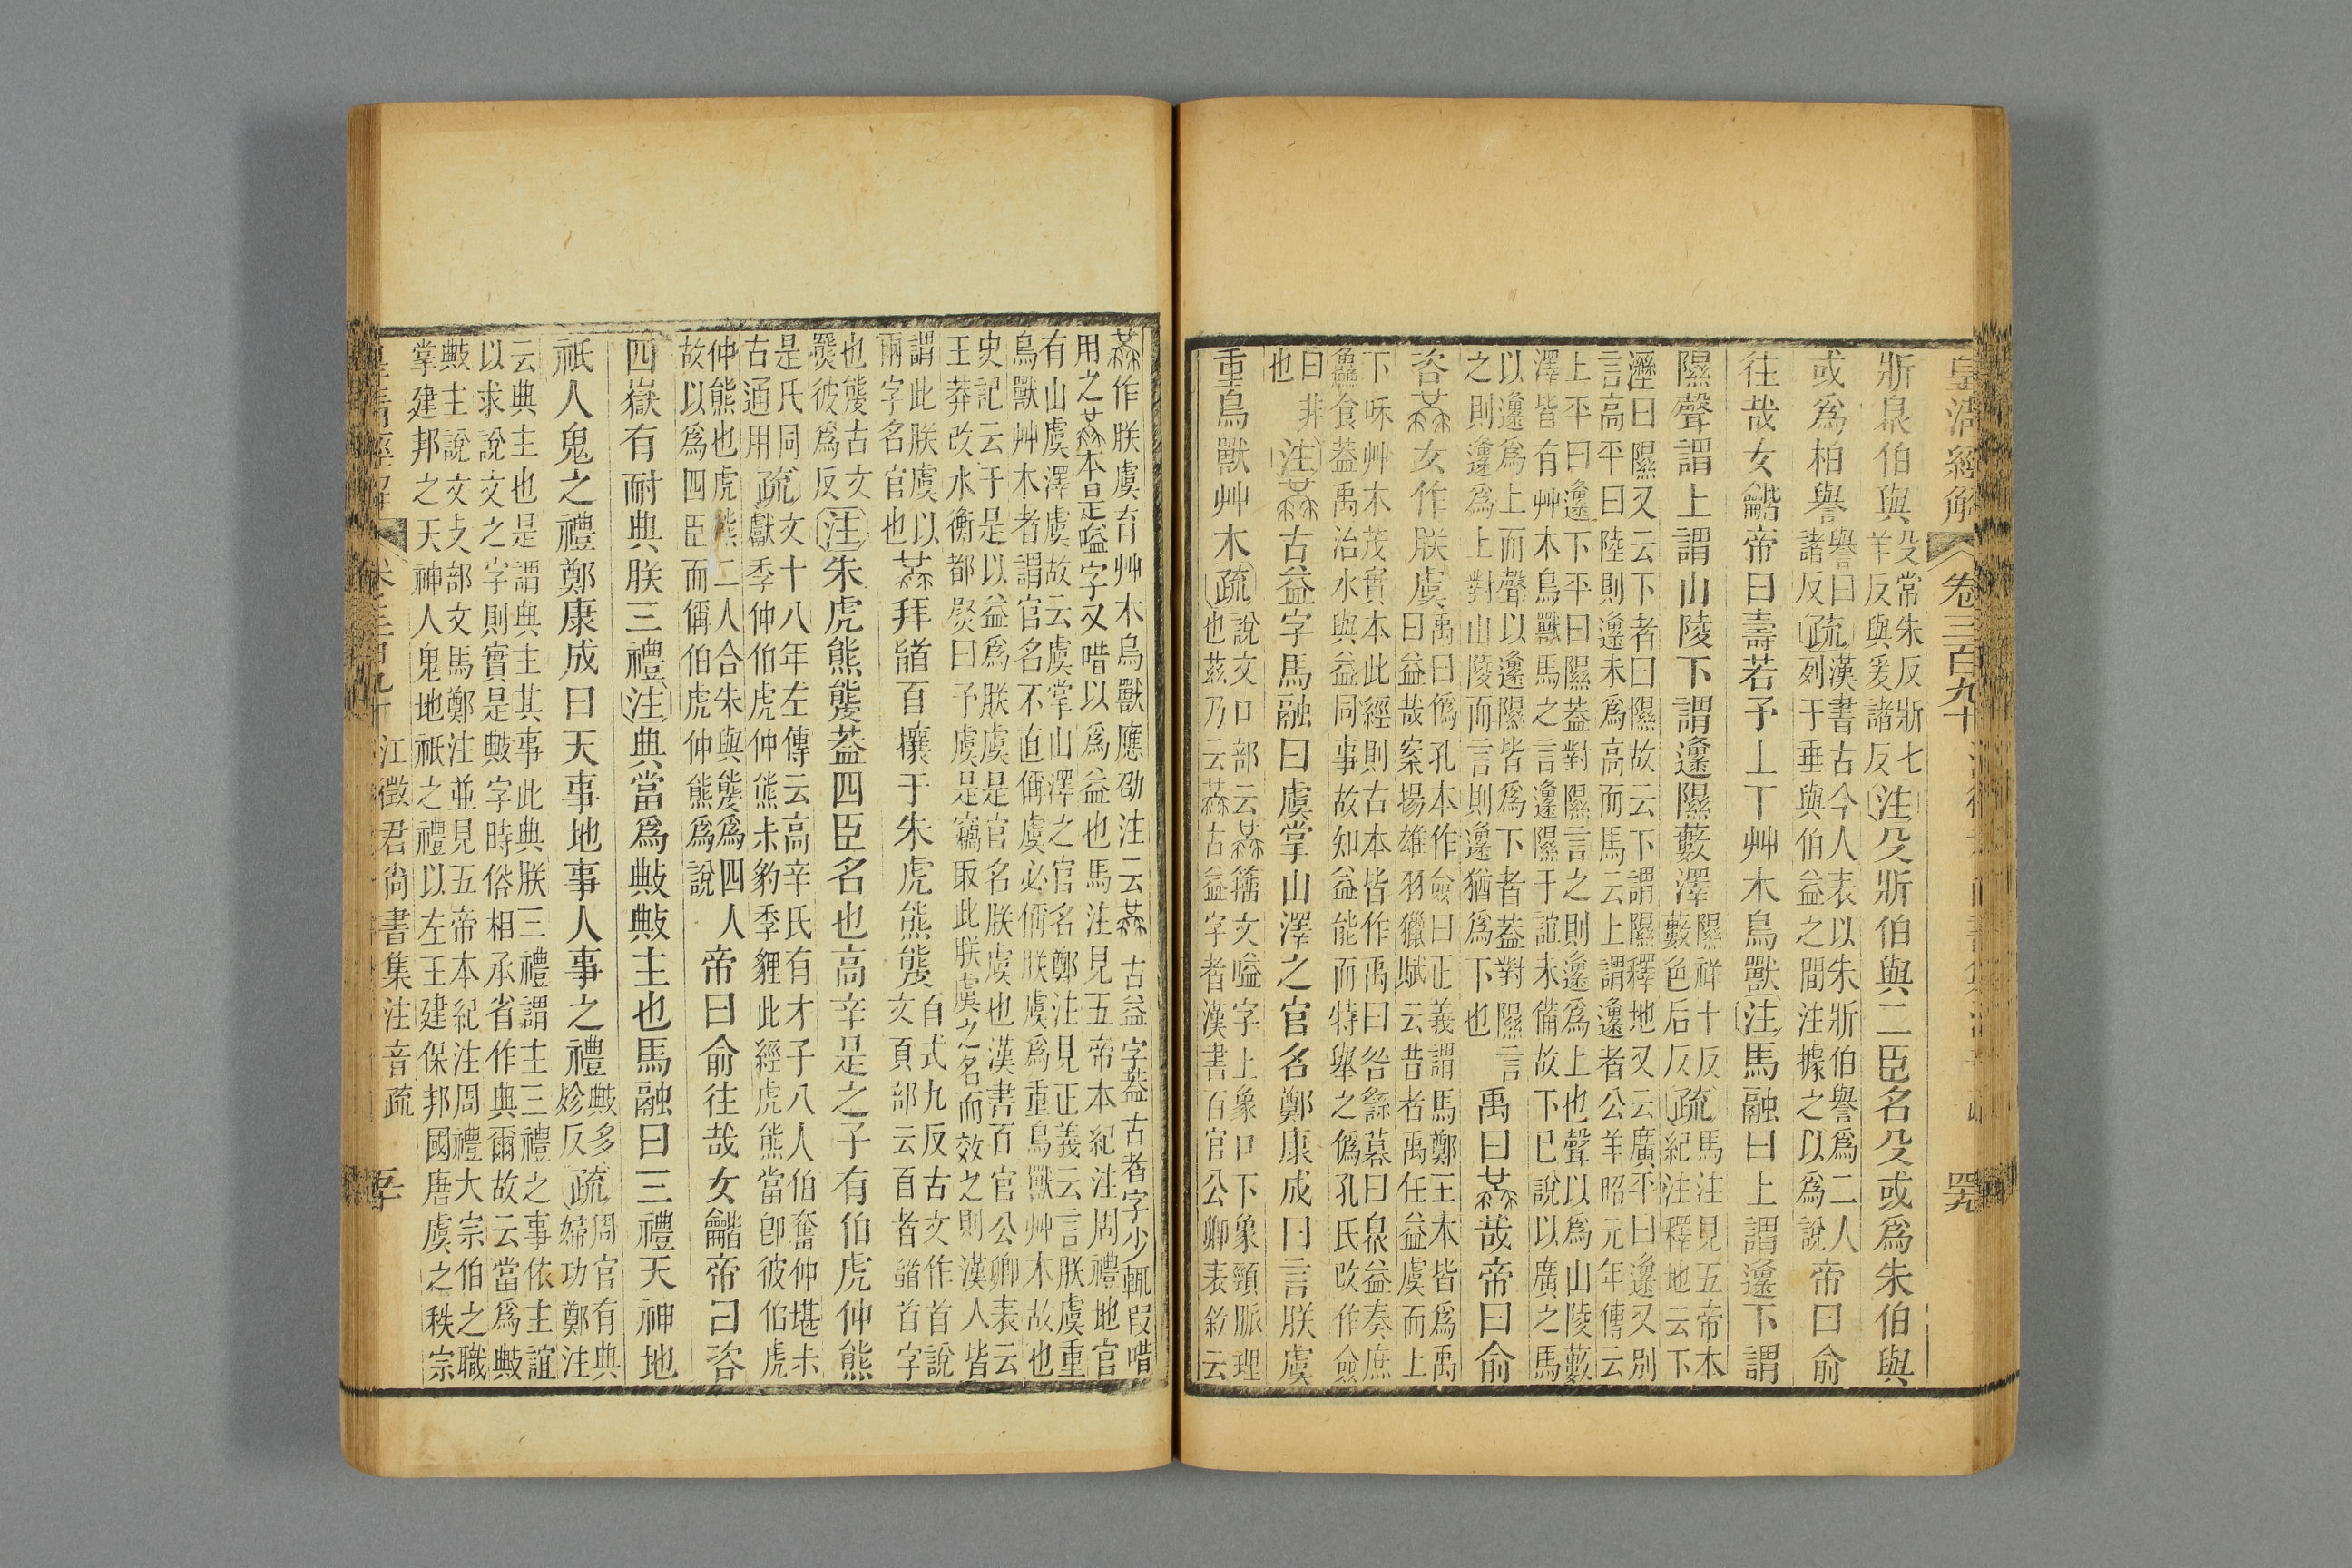 皇清經解 卷三百九十 江徵君尚書集注音疏 罢
斨泉伯與殳常朱反斨七
羊反與爰諸反注殳斨伯與二臣名殳或爲朱伯與
或爲柏譽譽曰
諸反疏漢書古今人表以朱斨伯譽爲二人
列于垂與伯益之間注據之以爲說帝曰俞
往哉女龤帝曰壽若予丄丅艸木鳥獸注馬融曰上謂邍下謂
隰聲謂上謂山陵下謂邍隰藪澤隰祥十反
藪色后反疏馬注見五帝本
紀注釋地云下
溼曰隰又云下者曰隰故云下謂隰釋地又云廣平曰邍又別
言高平曰陸則邍未爲高而馬云上謂邍者公羊昭元年傳云
上平曰邍下平曰隰葢對隰言之則邍爲上也聲以爲山陵藪
澤皆有艸木鳥獸馬之言邍隰于誼未備故下已說以廣之馬
以邍爲上而聲以邍隰皆爲下者葢對隰言
之則邍爲上對山陵而言則邍猶爲下也禹曰𦺞哉帝曰俞
咨𦺞女作朕虞禹曰僞孔本作僉曰正義謂馬鄭王本皆爲禹
曰益哉案揚雄羽獵賦云昔者禹任益虞而上
下咊艸木茂實本此經則古本皆作禹曰咎繇謨曰泉益奏庶
鱻食葢禹治水與益同事故知益能而特舉之僞孔氏改作僉
曰非
也注𦺞古益字馬融曰虞掌山澤之官名鄭康成曰言朕虞
重鳥獸艸木疏說文口部云𦺞籒文嗌字上象口下象頸脈理
也茲乃云𦺞古益字者漢書百官公卿表敘云
𦺞作朕虞育艸木鳥獸應劭注云𦺞古益字葢古者字少輒叚唶
用之𦺞本是嗌字又唶以爲益也馬注見五帝本紀注周禮地官
有山虞澤虞故云虞掌山澤之官名鄭注見正義云言朕虞重
鳥獸艸木者謂官名不直偁虞必偁朕虞爲重鳥獸艸木故也
史記云于是以益爲朕虞是官名朕虞也漢書百官公卿表云
王莽改水衡都尉曰予虞是竊取此朕虞之名而效之則漢人皆
謂此朕虞以
兩字名官也𦺞拜䭫百攘于朱虎熊䍺百式九反古文作首說
文頁部云百者䭫首字
也䍺古文
羆彼爲反注朱虎熊䍺葢四臣名也高辛是之子有伯虎仲熊
是氏同
古通用疏文十八年左傳云高辛氏有才子八人伯奮仲堪尗
獻季仲伯虎仲熊尗豹季貍此經虎熊當卽彼伯虎
仲熊也虎熊二人合朱與䍺爲四人
故以爲四臣而偁伯虎仲熊爲說帝曰俞往哉女龤帝曰咨
四嶽有耐典朕三禮注典當爲敟敟主也馬融曰三禮天神地
祇人鬼之禮鄭康成曰天事地事人事之禮敟多
㐱反疏周官有典
婦功鄭注
云典主也是謂典主其事此典朕三禮謂主三禮之事依主誼
以求說文之字則實是敟字時俗相承省作典爾故云當爲敟
敟主說文攴部文馬鄭注並見五帝本紀注周禮大宗伯之職
掌建邦之天神人鬼地祇之禮以左王建保邦國唐虞之秩宗
皇清經解 卷三百九十 江徵君尚書集注音疏